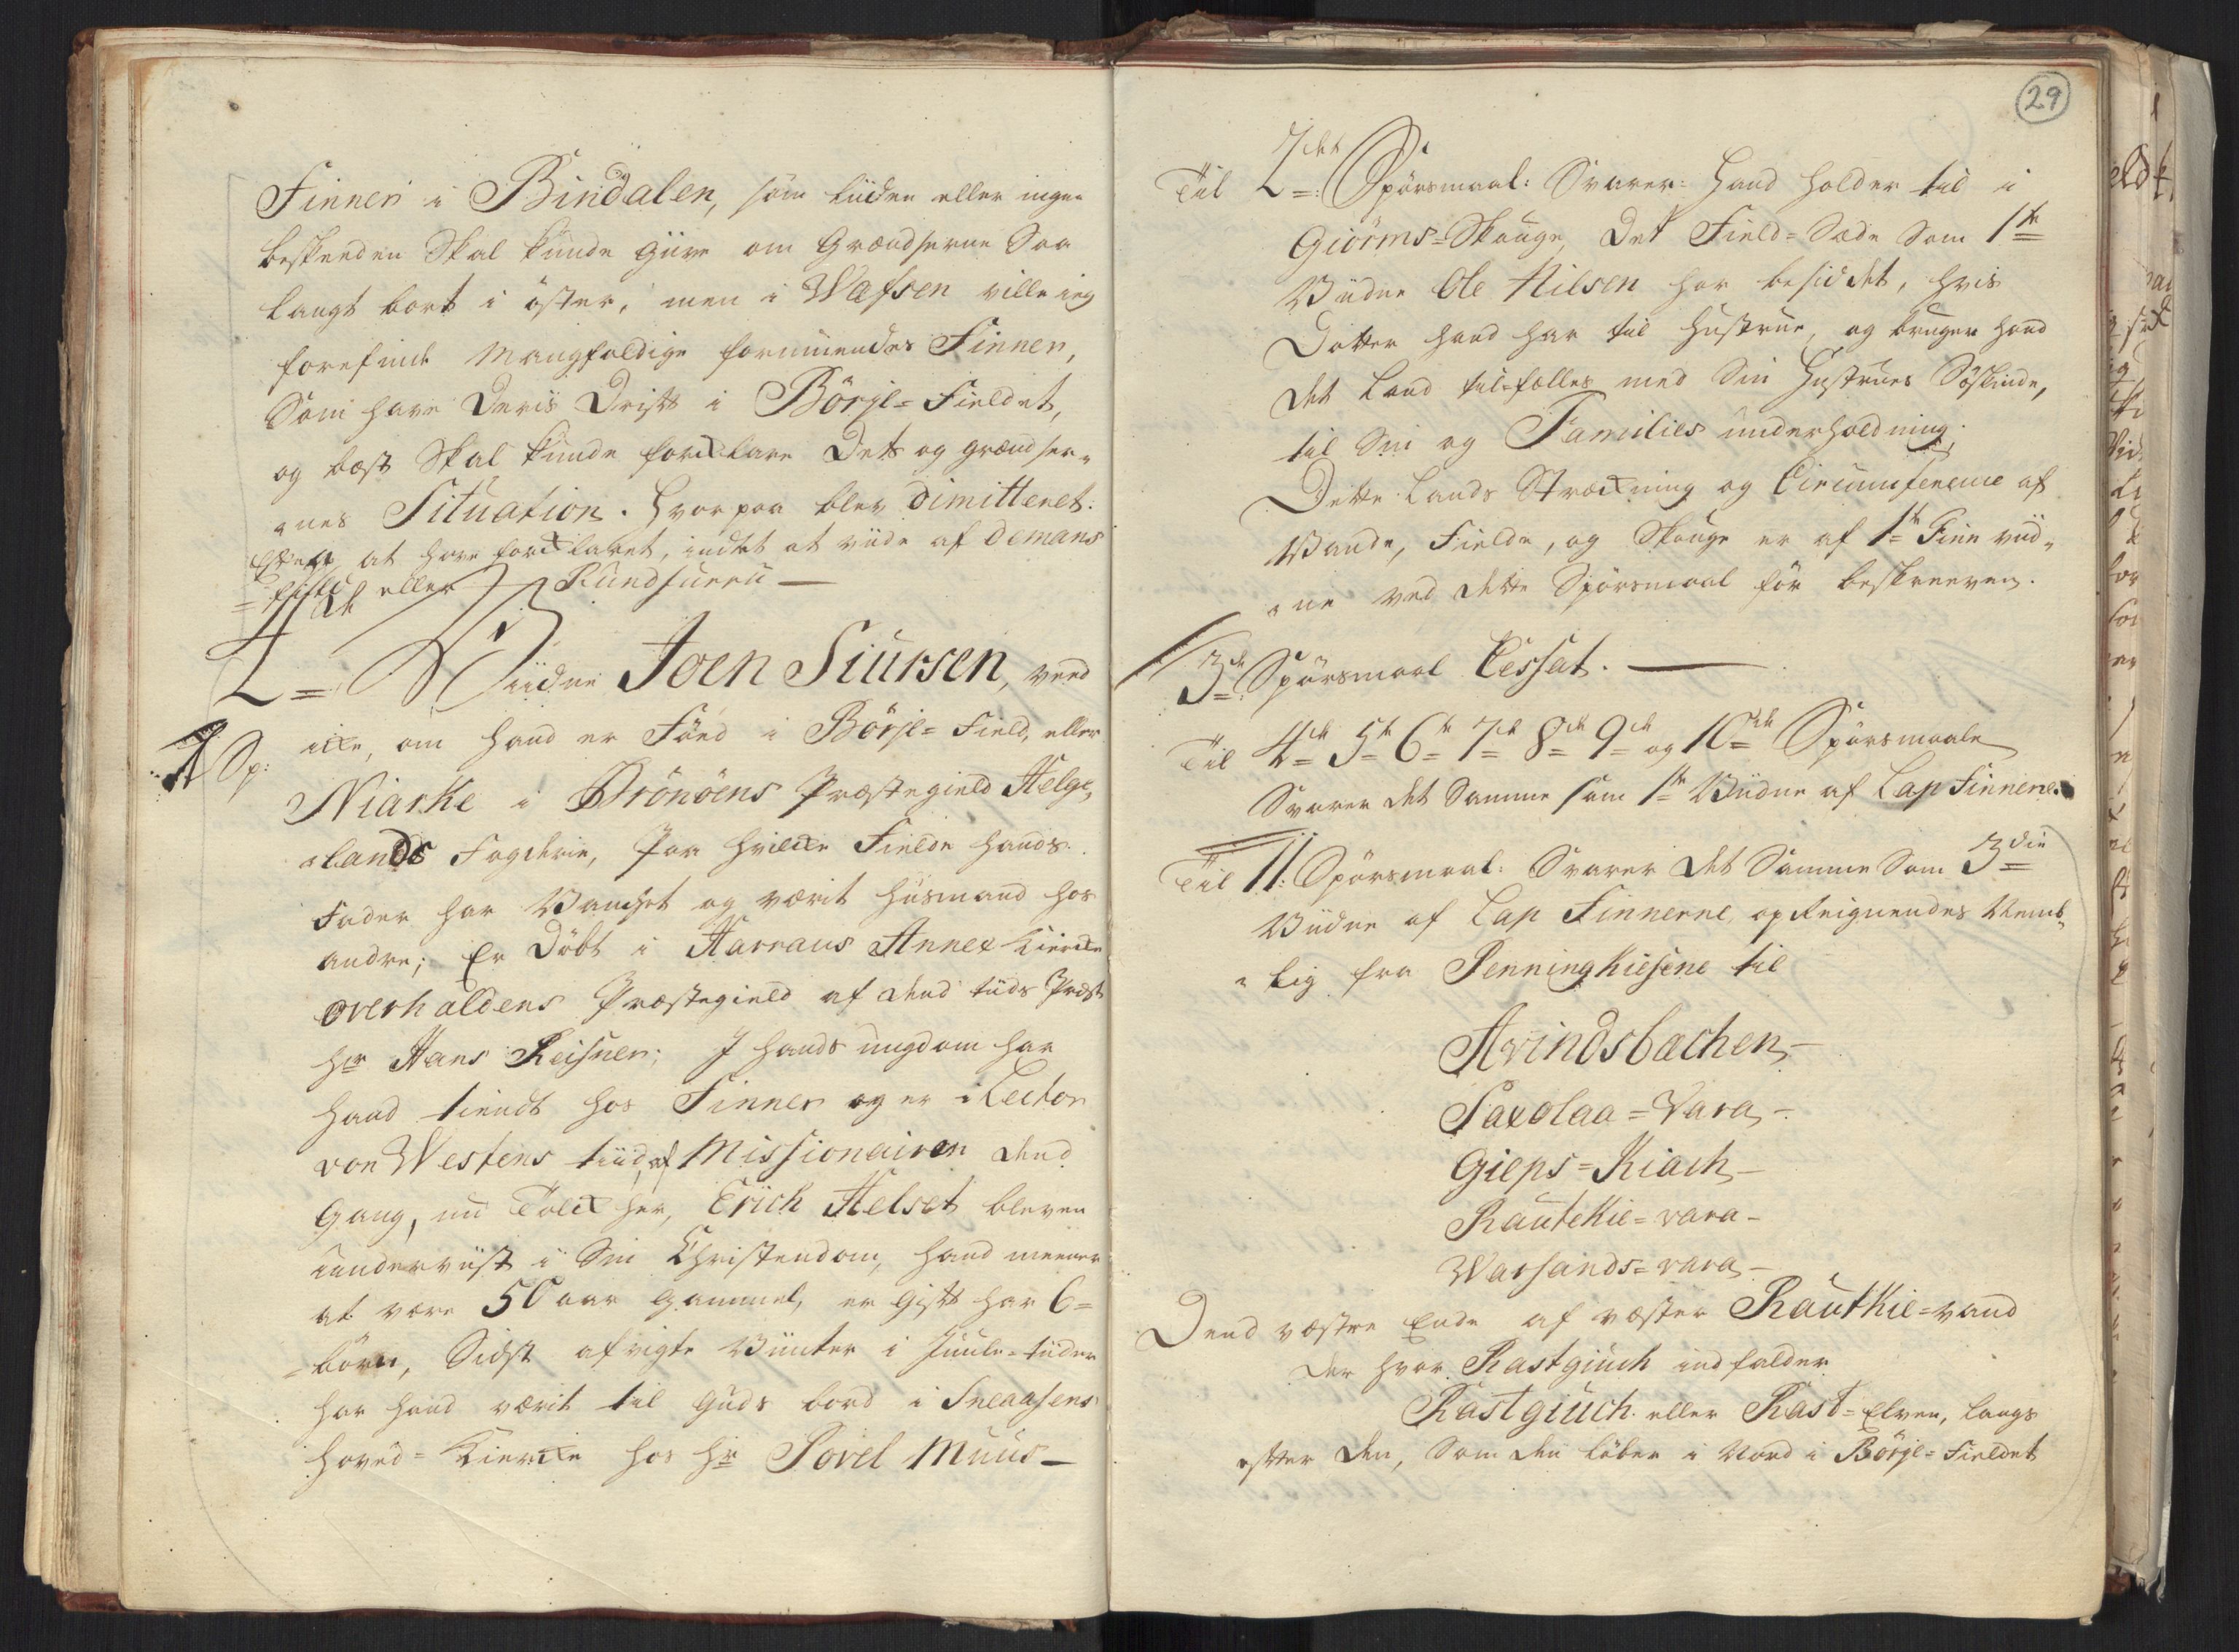 Finner i Bindalen, som liiden eller ingen
beskeeden Skal kunde giive om Grændserne Saa
langt bort i öster, men i Wefsen ville ieg
forefinde Mangfoldige formuendes Finner,
Som have Deris Drift i Börje-Fieldet,
og bæst Skal kunde forklare Dets og grændser-
nes Situation. Hvorpaa blev Dimitteret
at have forklaret, intet at viide af Demans
eller Rundsueru —
4de Viidne Joen Siursen, veed
1 Sp: icke, om hand er Föed i Börje-Field, eller
Niarke i Brönöens Præstegield Helge-
lands Fogderie, Paa hvilcke Fielde hands
Fader har Vancket og værit huusmand hos
andre; Er Döbt i Harrans Annex Kiercke
Overhaldens Præstegield af dend tiids Præst
hr Hans Reisner; I hands ungdom har
hand tient hos Finner og er i Lector
von Westens tiid, af Missionairen dend
Gang, nu Tolck her, Erich Helset bleven
underviist i Sin Christendom, hand meener
at være 50 aar gammel, er gift har 6-
börn, Sidst afvigte Vinter i Juule-tiider
har hand værit til Guds bord i Sneaasens
hoved-Kiercke hos hr Povel Muus —
29
Til 2det Spörsmaal: Svarer: Hand holder til i
Giörms-Skouge, Det Field-Sæde Som 1te
Viidne Ole Nilsen har besiddet, hvis
Datter hand har til hustrue, og bruger hand
det Land tilfælles med Sin Hustrues Söskende,
til Sin og Families underholdning;
Dette Lands Stræckning og Circumference af
Vande, Fielde, og Skouge er af 1te Finn viid-
ne ved dette Spörsmaal för beskreeven.
3de Spörsmaal Cessat. —
Til 4de 5te 6te 7de 8de 9de og 10de Spörsmaale
Svarer det Samme som 1te Viidne af Lap Finnene.
Til 11: Spörsmaal: Svarer det Samme Som 3die
Viidne af Lap Finnerne, opReignendes Nemb-
lig fra Penningkiesene til
Arvindsbachen,—
Saxolaa-Vara,—
Gieps-Kiach,—
Rautekie-vara—
Warsands-vara,—
Dend væstre Ende af væster Rautkie-vand
der hvor Rastgiuch indfalder
Rastgiuch eller Rast-Elven, langs
efter den, Som den löber i Nord i Börje-Fieldet